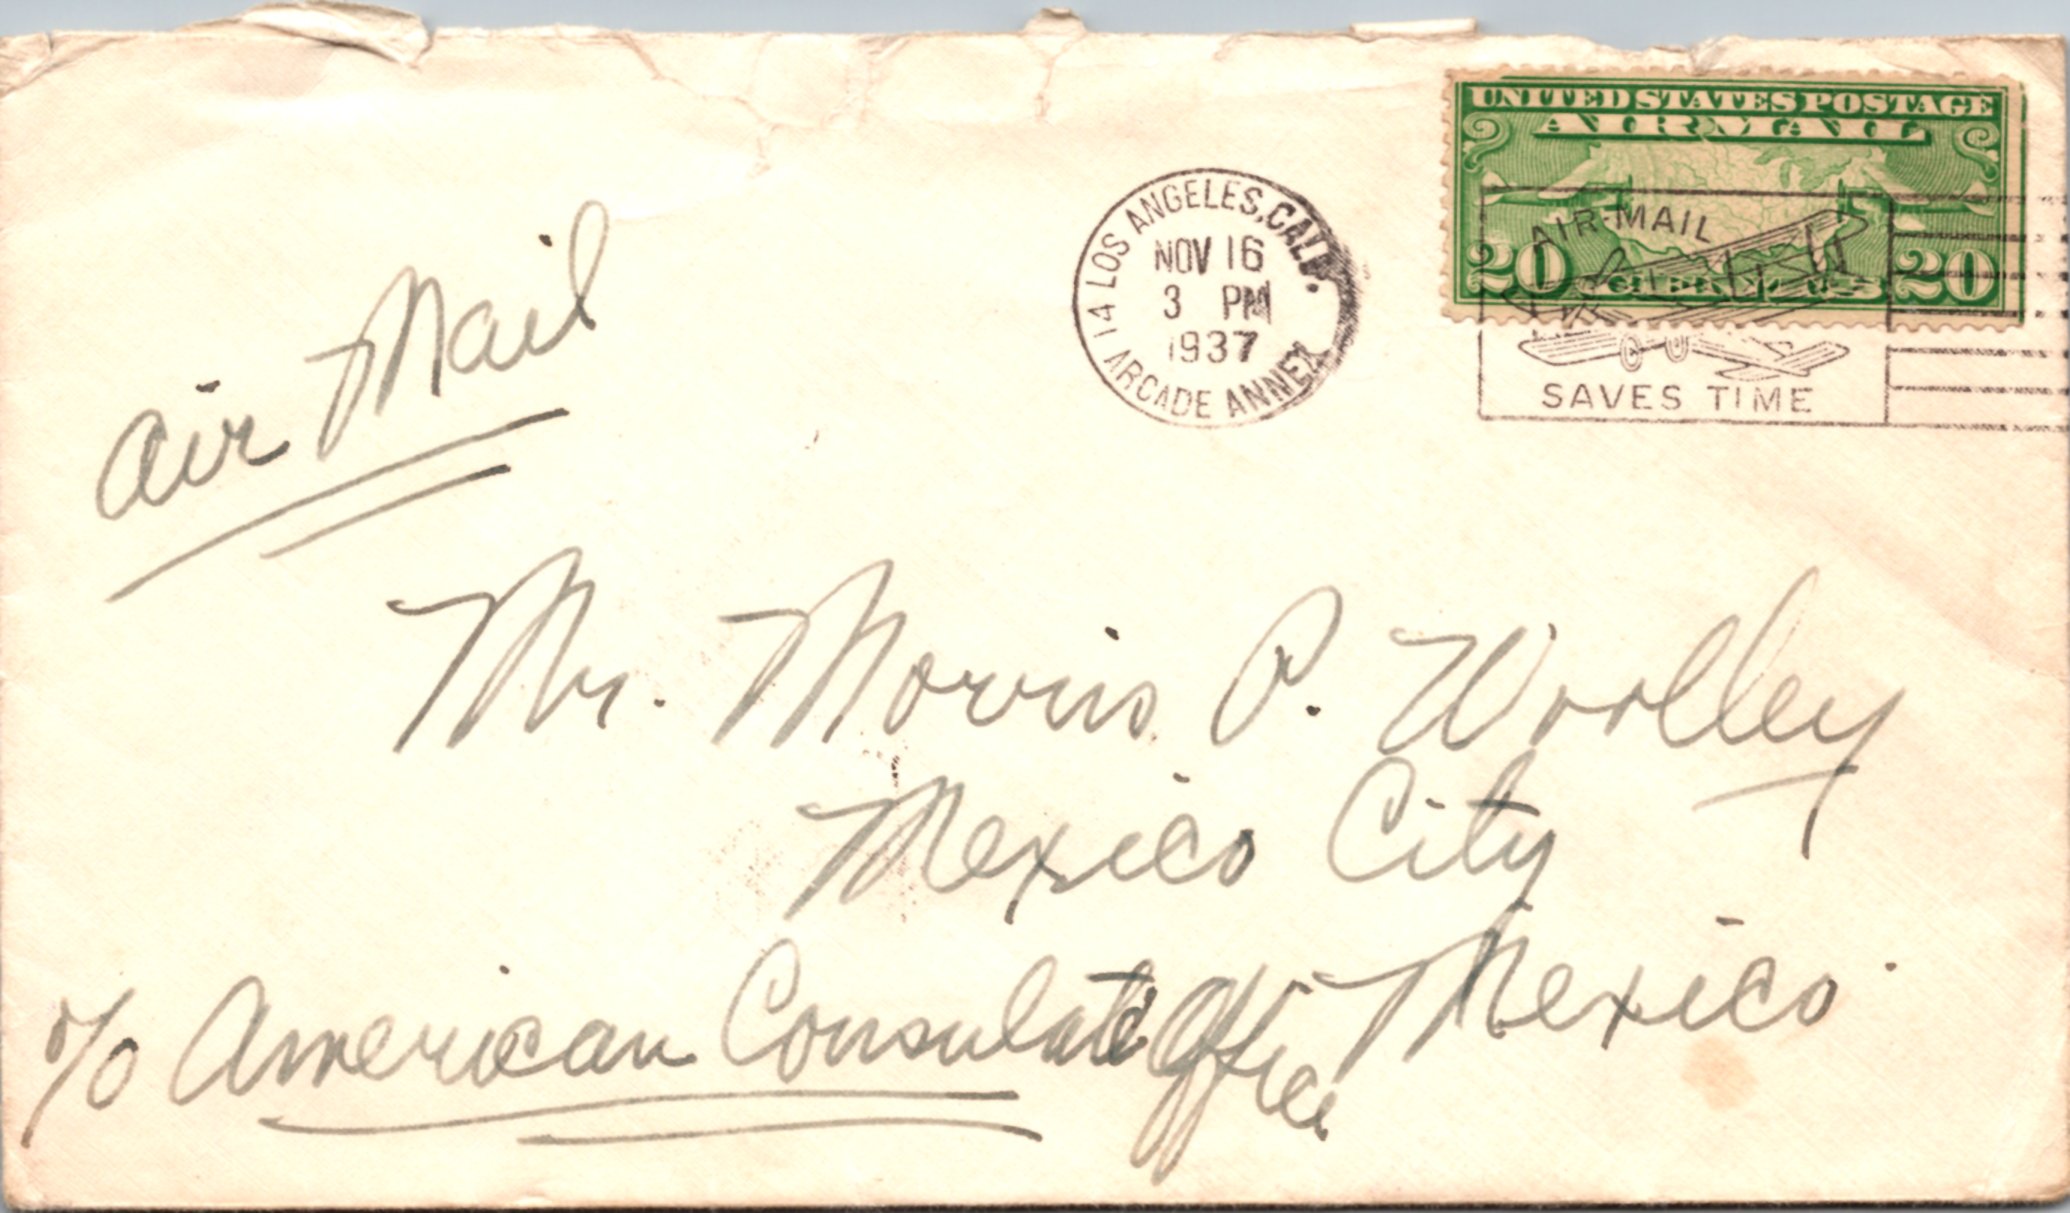 UNITED STATES POSTAGE
AIR MAIL
20 CENTS 20
LOS ANGELES, CALIF.
14 ARCADE ANNEX
NOV 16
3 PM
1937
AIR-MAIL
SAVES TIME
Air Mail
Mr. Morris P. Woolley
Mexico City
Mexico.
c/o American Consulate Office